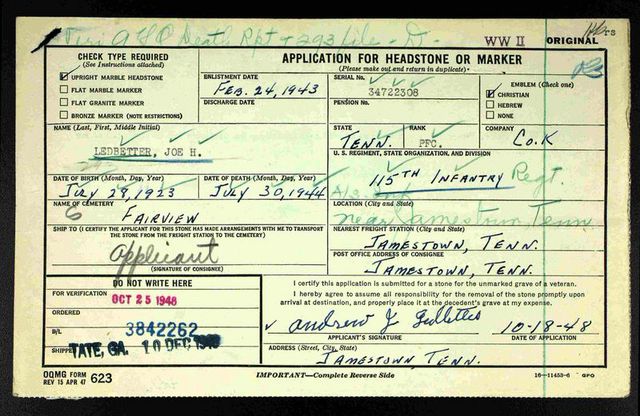 Veri AGO Death Rpt + 293 file - D -
WW II ORIGINAL
CHECK TYPE REQUIRED
(See Instructions attached)
UPRIGHT MARBLE HEADSTONE
FLAT MARBLE MARKER
FLAT GRANITE MARKER
BRONZE MARKER (NOTE RESTRICTIONS)
APPLICATION FOR HEADSTONE OR MARKER
(Please make out and return in duplicate)
ENLISTMENT DATE
FEB. 24, 1943
DISCHARGE DATE
SERIAL No.
34722308
PENSION No.
EMBLEM (Check one)
CHRISTIAN
HEBREW
NONE
NAME (Last, First, Middle Initial)
LEDBETTER, JOE H.
STATE
TENN.
RANK
PFC.
COMPANY
Co. K
U. S. REGIMENT, STATE ORGANIZATION, AND DIVISION
115TH INFANTRY Regt.
DATE OF BIRTH (Month, Day, Year)
JULY 29, 1923
DATE OF DEATH (Month, Day, Year)
JULY 30, 1944
NAME OF CEMETERY
FAIRVIEW
LOCATION (City and State)
near Jamestown, Tenn
SHIP TO (I CERTIFY THE APPLICANT FOR THIS STONE HAS MADE ARRANGEMENTS WITH ME TO TRANSPORT
THE STONE FROM THE FREIGHT STATION TO THE CEMETERY)
applicant
(SIGNATURE OF CONSIGNEE)
NEAREST FREIGHT STATION (City and State)
JAMESTOWN, TENN.
POST OFFICE ADDRESS OF CONSIGNEE
JAMESTOWN, TENN.
DO NOT WRITE HERE
FOR VERIFICATION
OCT 25 1948
ORDERED
B/L
3842262
SHIPPED
TATE, GA. 10 DEC 1948
I certify this application is submitted for a stone for the unmarked grave of a veteran.
I hereby agree to assume all responsibility for the removal of the stone promptly upon
arrival at destination, and properly place at the decedent's grave at my expense.
Andrew J Ledbetter
10-18-48
APPLICANT'S SIGNATURE
DATE OF APPLICATION
ADDRESS (Street, City, State)
JAMESTOWN, TENN.
OQMG FORM
REV 15 APR 47
623
IMPORTANT—Complete Reverse Side
16—11453-6 GPO